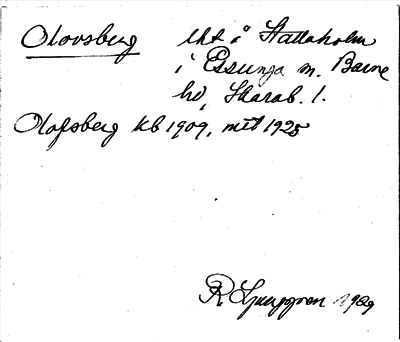 Olovsberg lht å Stallaholm
i Essunga m. Barne
hd, Skarab. l.
Olofsberg kb 1909, mtl 1925
R Ljunggren 1929